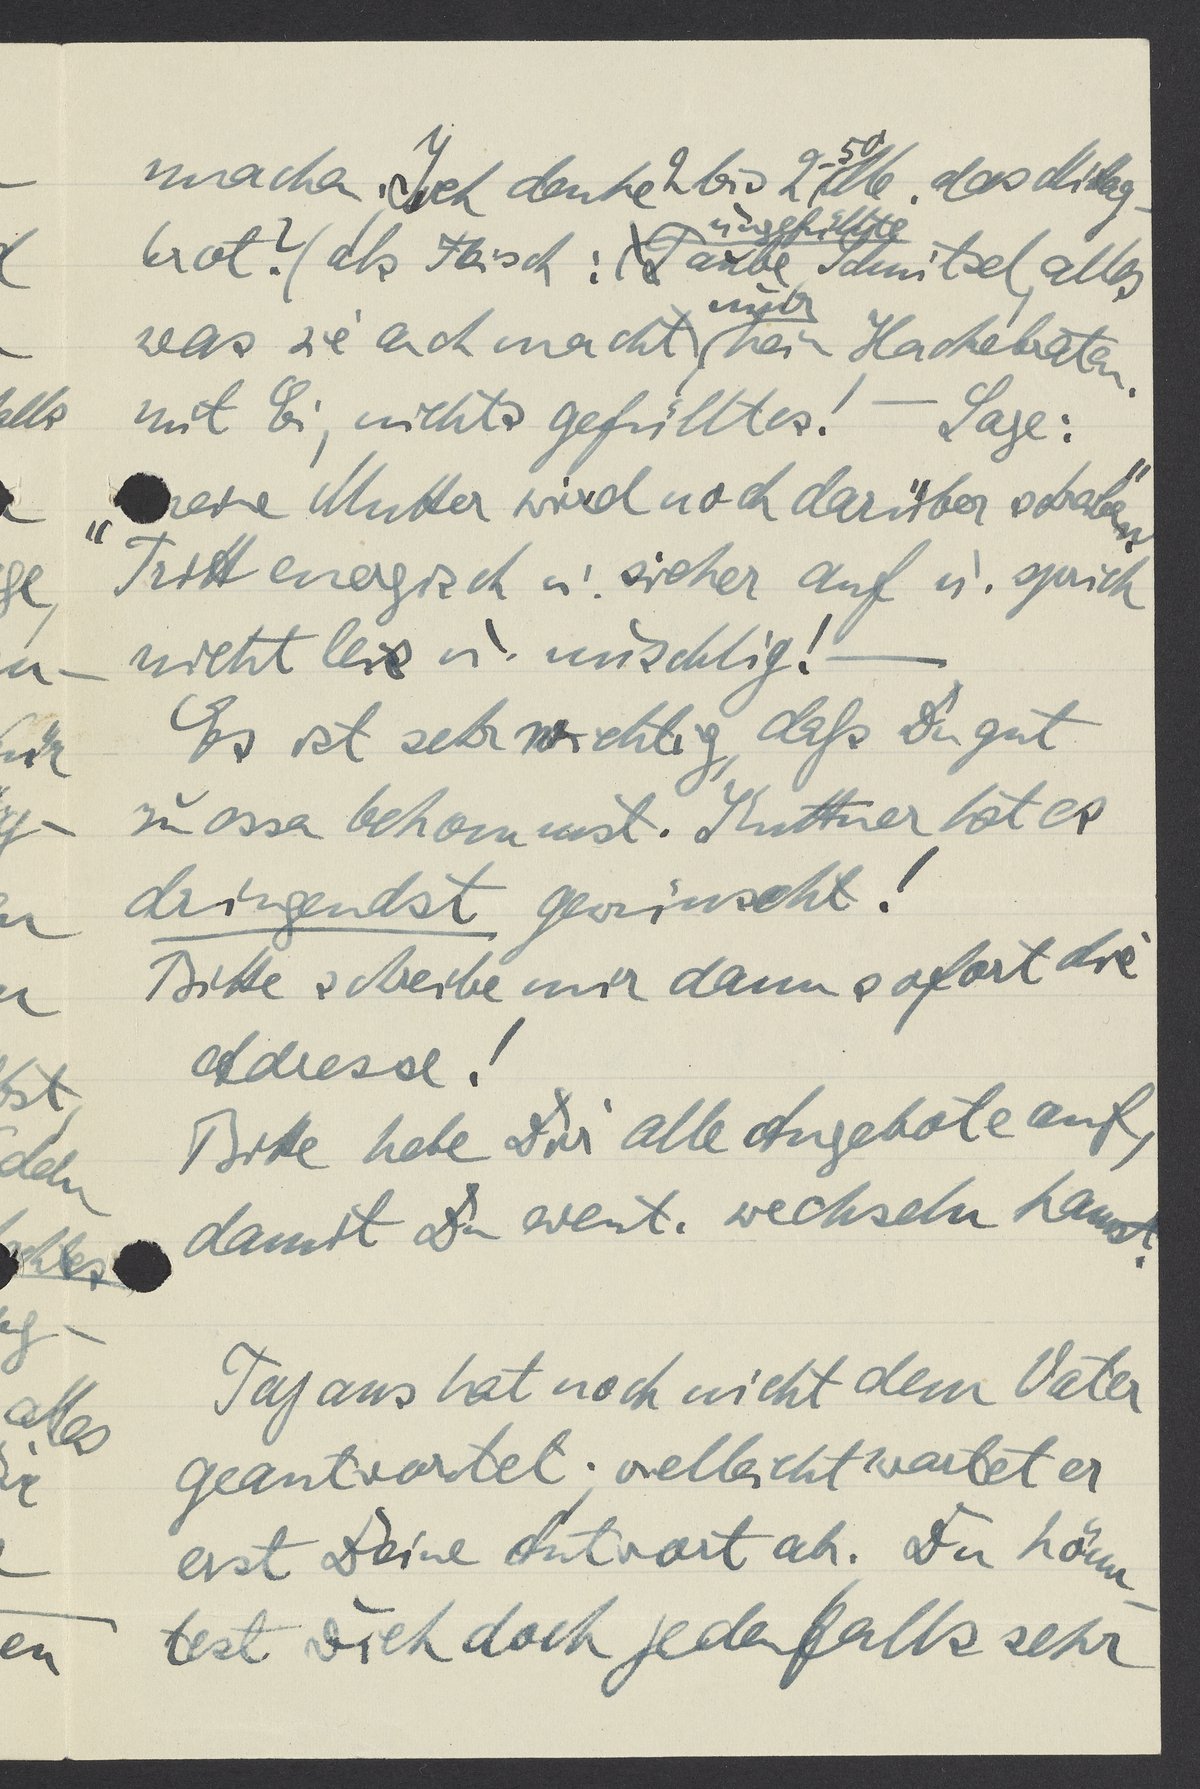 machen. Ich denke 2 bis 2,50 M. das Mittag-
brot? (als Fleisch: (Taube ungefüllte Schnitzel, alles
was sie auch macht), nur kein Hackebraten
mit Ei, nichts gefülltes! — Sage:
"meine Mutter wird noch darüber schreiben"
Tritt energisch u. sicher auf u. sprich
nicht leis u. nuschlig! —
Es ist sehr wichtig, daß Du gut
zu essen bekommst. Kuttner hat es
dringendst gewünscht!
Bitte schreibe mir dann sofort die
Adresse!
Bitte hebe Dir alle Angebote auf,
damit Du event. wechseln kannst.
hat noch nicht dem Vater
geantwortet; vielleicht wartet er
erst Deine Antwort ab. Du könn-
test Dich doch jedenfalls sehr